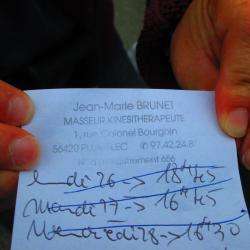 Jean-Marie BRUNET
MASSEUR KINESITHERAPEUTE
1, rue Colonel Bourgoin
56420 PLUMELEC ✆ 97.42.24.8
Lundi 26 -> 18h45
Mardi 27 -> 16h45
Mercredi 28 -> 18h30